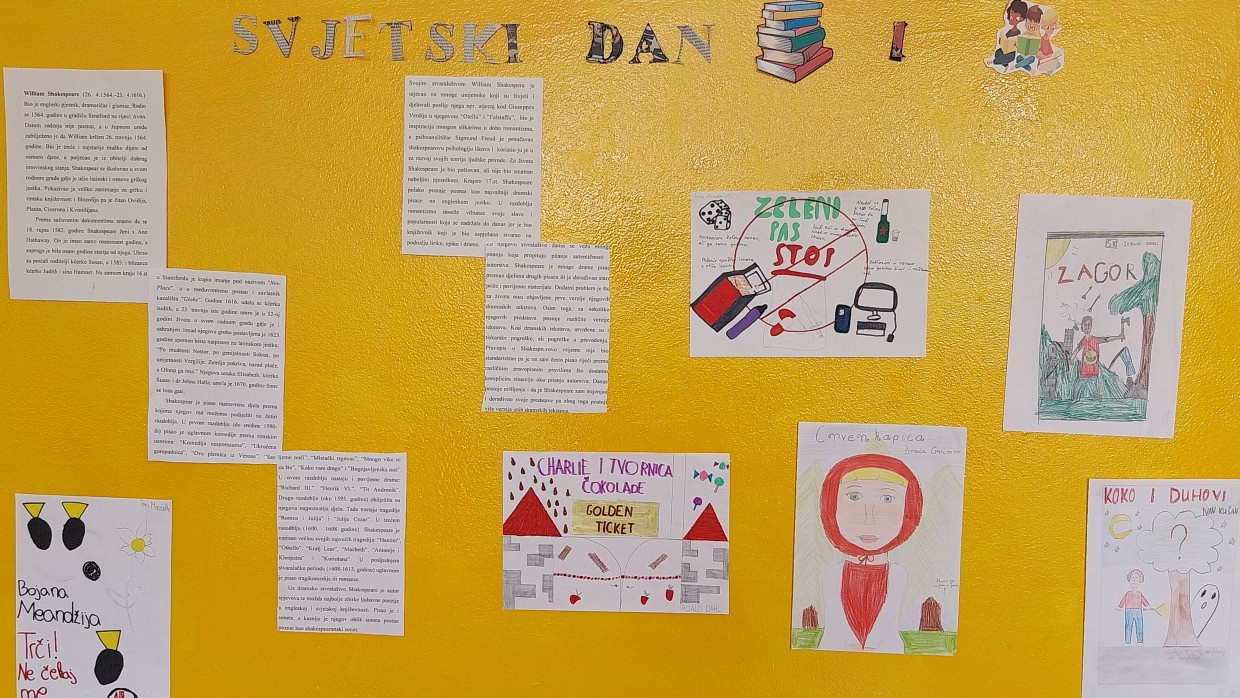 SVJETSKI DAN I
William Shakespeare (26. 4.1564.–23. 4.1616.)
Bio je engleski pjesnik, dramatičar i glumac. Rođen
je 1564. godine u gradiću Stratford na rijeci Avon.
Datum rođenja nije poznat, a u župnom uredu
zabilježeno je da William kršten 26. travnja 1564.
godine. Bio je treće i najstarije muško dijete od
osmero djece, a potjecao je iz obitelji dobrog
imovinskog stanja. Shakespear se školovao u svom
rodnom gradu gdje je učio latinski i osnove grčkog
jezika. Pokazivao je veliko zanimanje za grčku i
rimsku književnost i filozofiju pa je čitao Ovidija,
Plauta, Cicerona i Kvintilijana.
Prema sačuvanim dokumentima znamo da se
18. rujna 1582. godine Shakespeare ženi s Ann
Hathaway. On je imao osamnaest godina, a
supruga je bila osam godina starija od njega. Ubrzo
su postali roditelji kćerke Susan, a 1585. i blizanca
kćerke Judith i sina Hamnet. Na samom kraju 16.st
u Stratfordu je kupio imanje pod nazivom "New
Place", a u međuvremenu postao i suvlasnik
kazališta "Globe". Godine 1616. udala se kćerka
Judith, a 23. travnja iste godine umre je u 52-oj
godini života u svom rodnom gradu gdje je i
sahranjen. Iznad njegova groba postavljena je 1623.
godine spomen bista natpisom na latinskom jeziku:
"Po mudrosti Nestor, po genijalnosti Sokrat, po
umjetnosti Vergilije. Zemlja pokriva, narod plače,
a Olimp ga ima." Njegova unuka Elisabeth, kćerka
Susan i dr Johna Halla, umrla je 1670. godine čime
se loza gasi.
Shakespear je pisao raznovrsna djela prema
kojima njegov rad možemo podijeliti na četiri
razdoblja. U prvom razdoblju (do sredine 1590-
ih) pisao je uglavnom komedije prema rimskim
uzorima: "Komedija nesporazuma", "Ukroćena
goropadnica", "Dva plemića iz Verone", "San
ljetne noći", "Mletački trgovac", "Mnogo vike ni
za što", "Kako vam drago" i "Bogojavljenska noć".
U ovom razdoblju nastaju i povijesne drame:
"Richard III.", "Henrik VI.", "Tit Andronik".
Drugo razdoblje (oko 1595. godine) obilježila su
njegova najpoznatija djela. Tada nastaju tragedije
"Romeo i Julija" i "Julije Cezar". U trećem
razdoblju (1600. – 1608. godine) Shakespeare je
napisao većinu svojih najvećih tragedija: "Hamlet",
"Othello", "Kralj Lear", "Macbeth", "Antonije i
Kleopatra" i "Koriolana". U posljednjem
stvaralačkom periodu (1608-1613. godine) uglavnom
je pisao tragikomedije ili romanse.
Uz dramsko stvaralaštvo Shakespeare je autor
spjevova te možda najbolje zbirke ljubavne poezije
u engleskoj i svjetskoj književnosti. Pisao je i
sonete, a kasnije je njegov oblik soneta postao
poznat kao shakespearanski sonet.
Svojim stvaralaštvom William Shakespera je
utjecao na mnoge umjetnike koji su živjeli i
djelovali poslije njega npr. utjecaj kod Giuseppea
Verdija u njegovom "Otellu" i "Falstaffu", bio je
inspiracija mnogim slikarima u doba romantizma,
a psihoanalitičar Sigmund Freud je proučavao
shakespearovu psihologiju likova i koristio ju je u
za razvoj svojih teorija ljudske prirode. Za života
Shakespeare je bio poštovan, ali nije bio smatran
Krajem 17.st. Shakespeare
polako postaje poznat kao najvažniji dramski
pisac na engleskom jeziku. U razdoblju
romantizma doseže vrhunac svoje slave i
popularnosti koja se zadržala do danas jer je bio
književnik koji je bio uspješan stvarao na
području lirike, epike i drame.
Uz njegovo stvaralaštvo danas se vežu mnoga
pitanja koja propituju pitanje autentičnosti i
autorstva. Shakespeare je mnoge drame pisao
prema djelima drugih pisaca ili je dorađivao stare
priče i povijesne materijale. Dodatni problem je što
za života nisu objavljene prve verzije njegovih
dramskih tekstova. Osim toga, za nekoliko
njegovih predstava postoje različite verzije
tekstova. Kod dramskih tekstova, utvrđene su i
tiskarske pogreške, ali pogreške u prevođenju.
Pravopis u Shakespearovo vrijeme nije bio
standariziran pa je on sam često pisao riječi prema
različitim pravopisnim pravilima što dodatno
komplicira situaciju oko pitanja autorstva. Danas
postoje mišljenja i da je Shakespeare sam mijenjao
i dorađivao svoje predstave pa zbog toga postoji
više verzija istih dramskih tekstova.
ZELENI
PAS
STOP
ZAGOR
CHARLIE I TVORNICA
ČOKOLADE
GOLDEN
TICKET
ROALD DAHL
Crvenkapica
Braća Grimm
KOKO I DUHOVI
IVAN KUŠAN
?
Bojana
Meandžija
Trči!
Ne čekaj
me